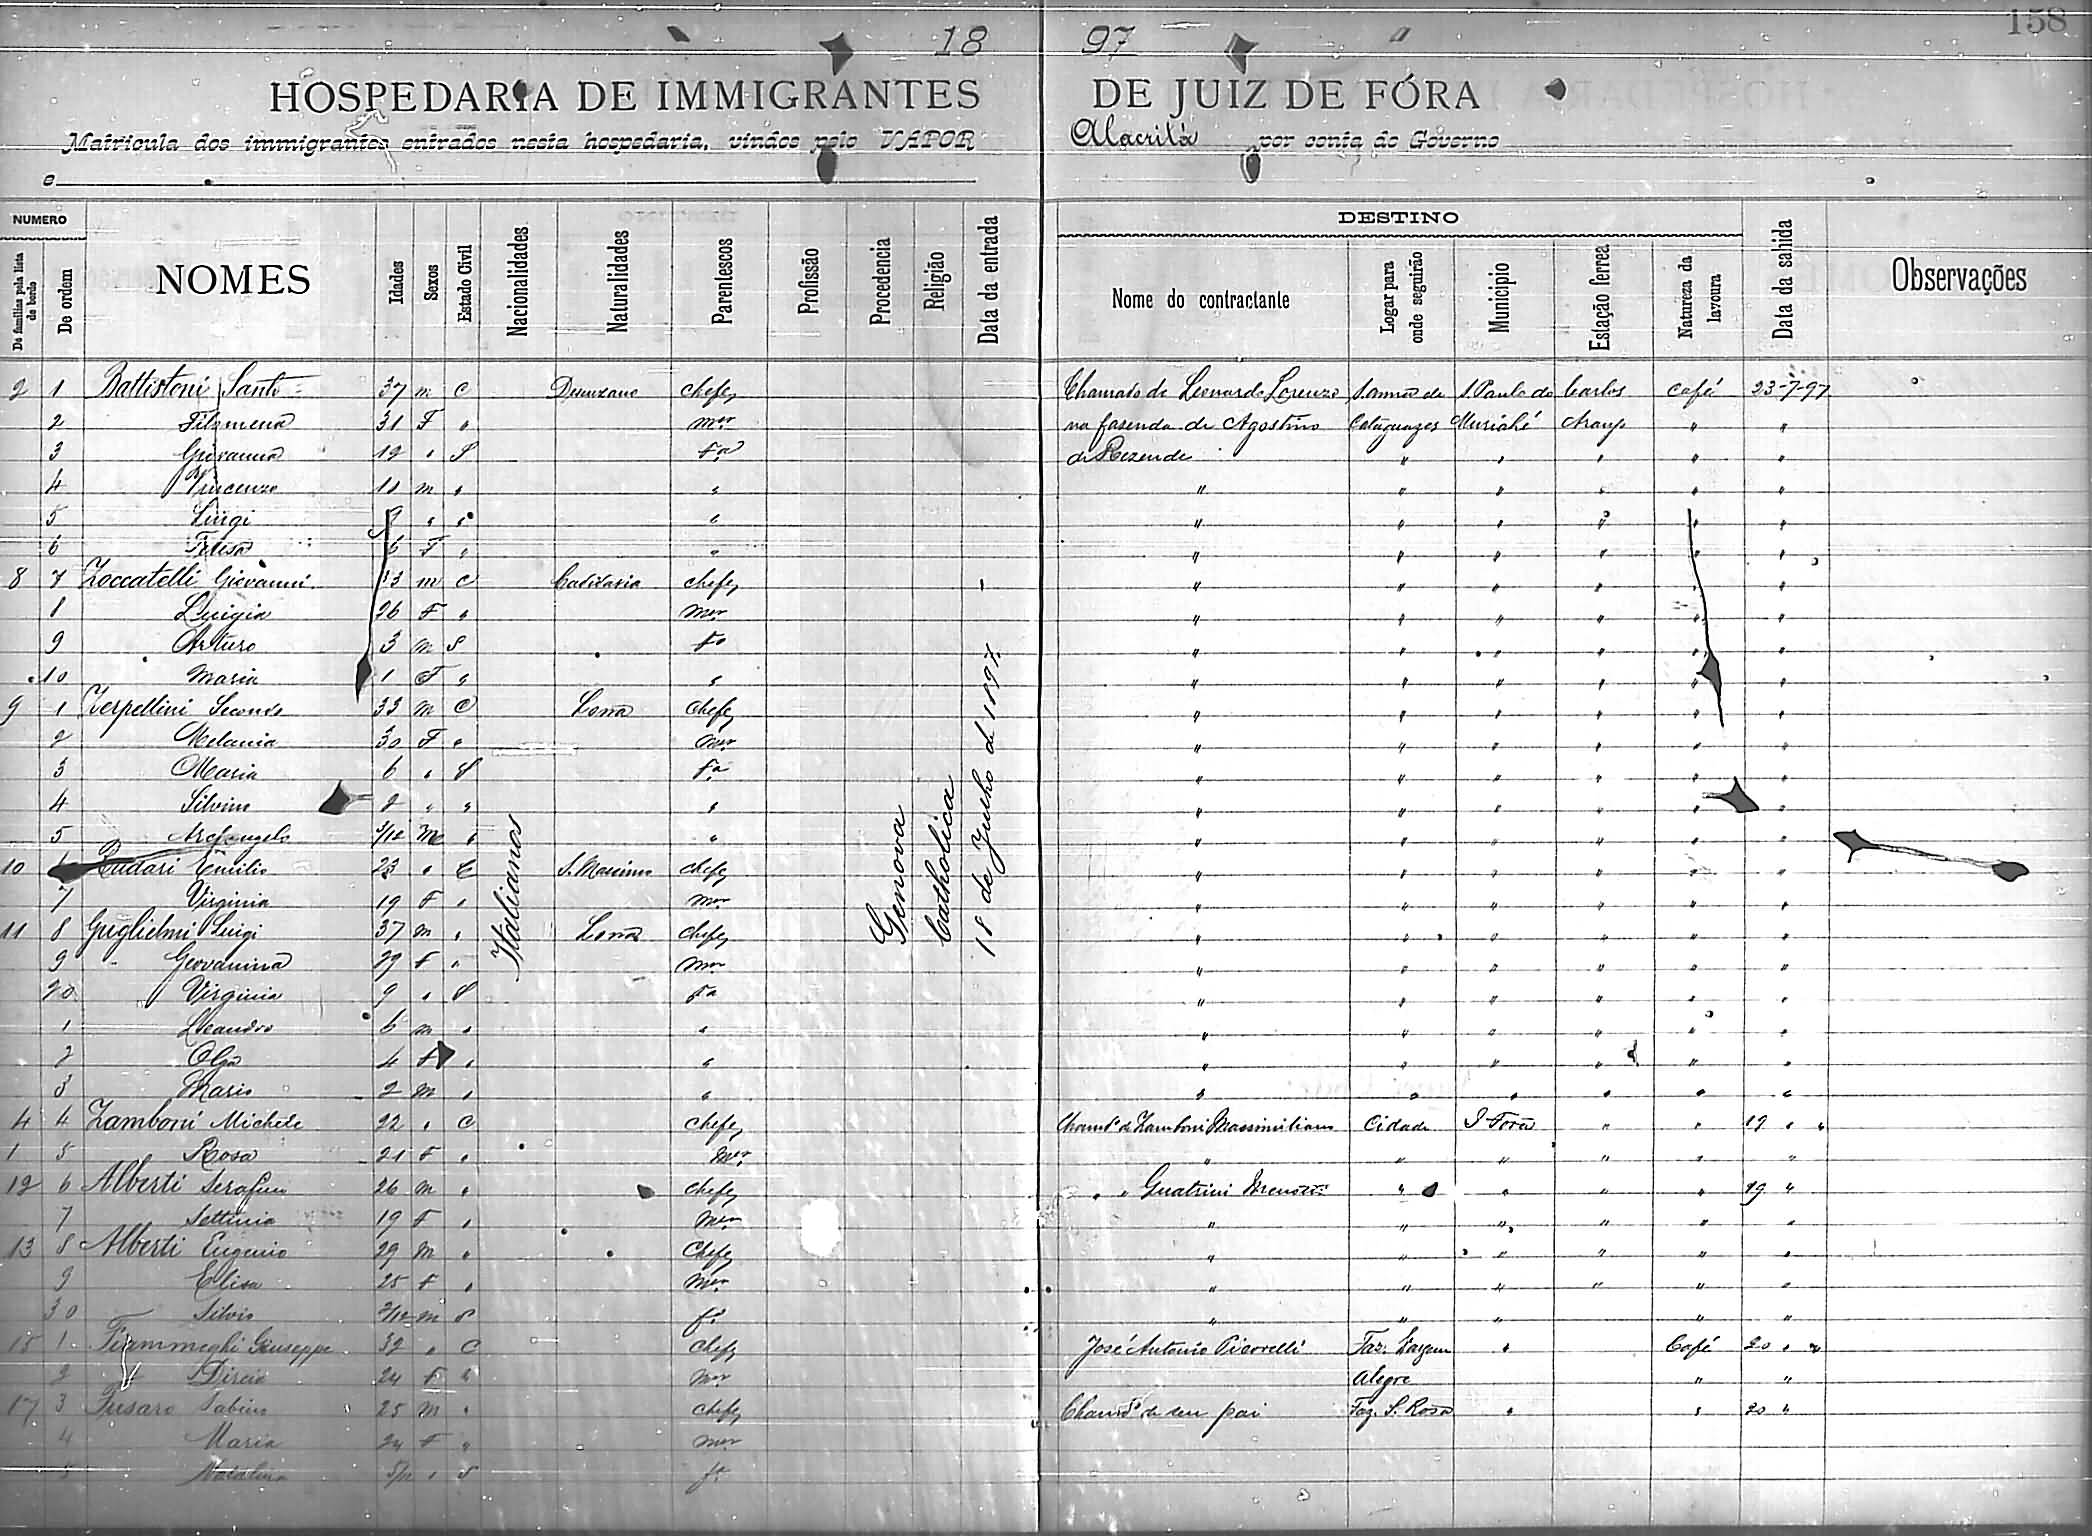 158
18 97
HOSPEDARIA DE IMMIGRANTES DE JUIZ DE FÓRA
Matricula dos immigrantes entrados nesta hospedaria, vindos pelo VAPOR Alacrità por conta do Governo
e
NUMERO DESTINO
De familias pela lista de bordo De ordem NOMES Idades Sexos Estado Civil Nacionalidades Naturalidades Parentescos Profissão Procedencia Religião Data da entrada Nome do contractante Logar para onde seguirão Municipio Estação ferrea Natureza da lavoura Data da sahida Observações
2 1 Battistoni Santo 37 m C chefe Chamado de Leonardo Lorenzo S. Paulo do Carlos Café 23-7-97
2 Filomena 31 F " mer na fasenda de Agostino Cataguazes Muriahé " "
3 Giovanna 12 " S Fa de Rezende " " " " "
4 Vincenzo 11 m " " " " " " " "
5 Luigi " " " " " " " " "
6 Teresa 6 F " " " " " " " "
8 7 Zoccatelli Giovanni 33 m C chefe " " " " " "
8 Luigia 26 F " mer " " " " " "
9 Arturo 3 m S fo " " " " " "
10 Maria 1 F " " " " " " " "
9 1 Zerpellini Secondo 33 m C chefe " " " " " "
2 Melania 30 F " mer " " " " " "
3 Maria 6 " S Fa " " " " " "
4 2 " " " " " " " " "
5 Archangelo 3/12 M " " " " " " " "
10 Emilio 23 " C S. Massimo chefe " " " " " "
7 Virginia 19 F " mer " " " " " "
11 8 Guglielmi Luigi 37 m " chefe " " " " " "
9 " Geovanina 29 F " mer " " " " " "
20 Virginia 9 " S Fa " " " " " "
1 Leandro 6 m " " " " " " " "
2 Olga 4 F " " " " " " " "
3 Mario 2 m " " " " " " " "
4 4 Zamboni Michele 22 " C chefe Chamdo de Zamboni Massimiliano Cidade J. Fora " " 19 " "
1 5 Rosa 21 F " Mer " " " " " "
12 6 Alberti Serafino 26 m " chefe " " Guatrini " " " " 19 "
7 Settimia 19 F " mer " " " " " "
13 8 Alberti Eugenio 29 m " Chefe " " " " " "
9 Elisa 25 F " mer " " " " " "
30 Silvio 2/12 m S fo " " " " "
15 1 Giuseppe 32 " C chefe José Antonio Picorelli Faz. " Café 20 " "
2 24 F " mer Alegre " "
17 3 Fusaro Sabino 25 m " chefe Chamdo de seu pai Faz. S. Rosa " " 20 "
4 Maria 24 F " mer
5 Natalina 5/12 " S fa
Italianos
Genova
Catholica
18 de Junho de 1897.